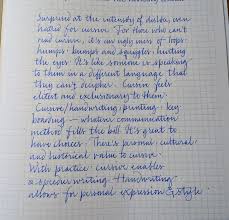 Surprised at the intensity of dislike, even
hatred for cursive. For those who can't
read cursive, it's an ugly mess of loops
humps, bumps and squiggles hurting
the eyes. It's like someone is speaking
to them in a different language that
they can't decipher. Cursive feels
elitist and exclusionary to them.
Cursive/handwriting/printing/key
boarding — whatever communication
method fills the bill. It's great to
have choices. There's personal, cultural,
and historical value to cursive.
With practice, cursive enables
speedier writing. Handwriting
allows for personal expression & style.